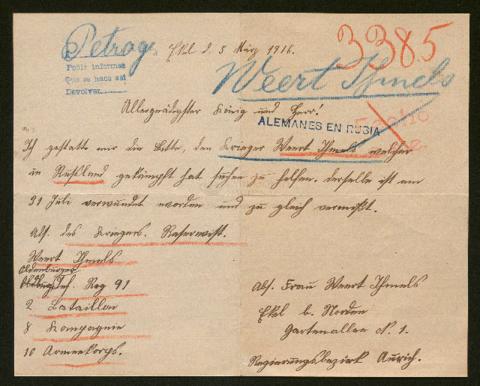 Petrog.
Pedir informes
Que se haca asi
Devolver
Ekel d. 5 März 1916.
3385
Weert Ihmels
Allergnädigster König und Herr!
ALEMANES EN RUSIA
Ich gestatte mir die Bitte, den Krieger Weert Ihmels welcher
in Rußland gekämpft hat suchen zu helfen. derselbe ist am
21 Juli verwundet worden und zu gleich vermißt.
Abs. des Kriegers.
Weert Ihmels
Oldenburger
Inf. Reg 91
2 Bataillon
8 Kompagnie
10 Armeekorps.
Abs. Frau Weert Ihmels
Ekel b. Norden
Gartenallee N. 1.
Regierungsbezirk Aurich.